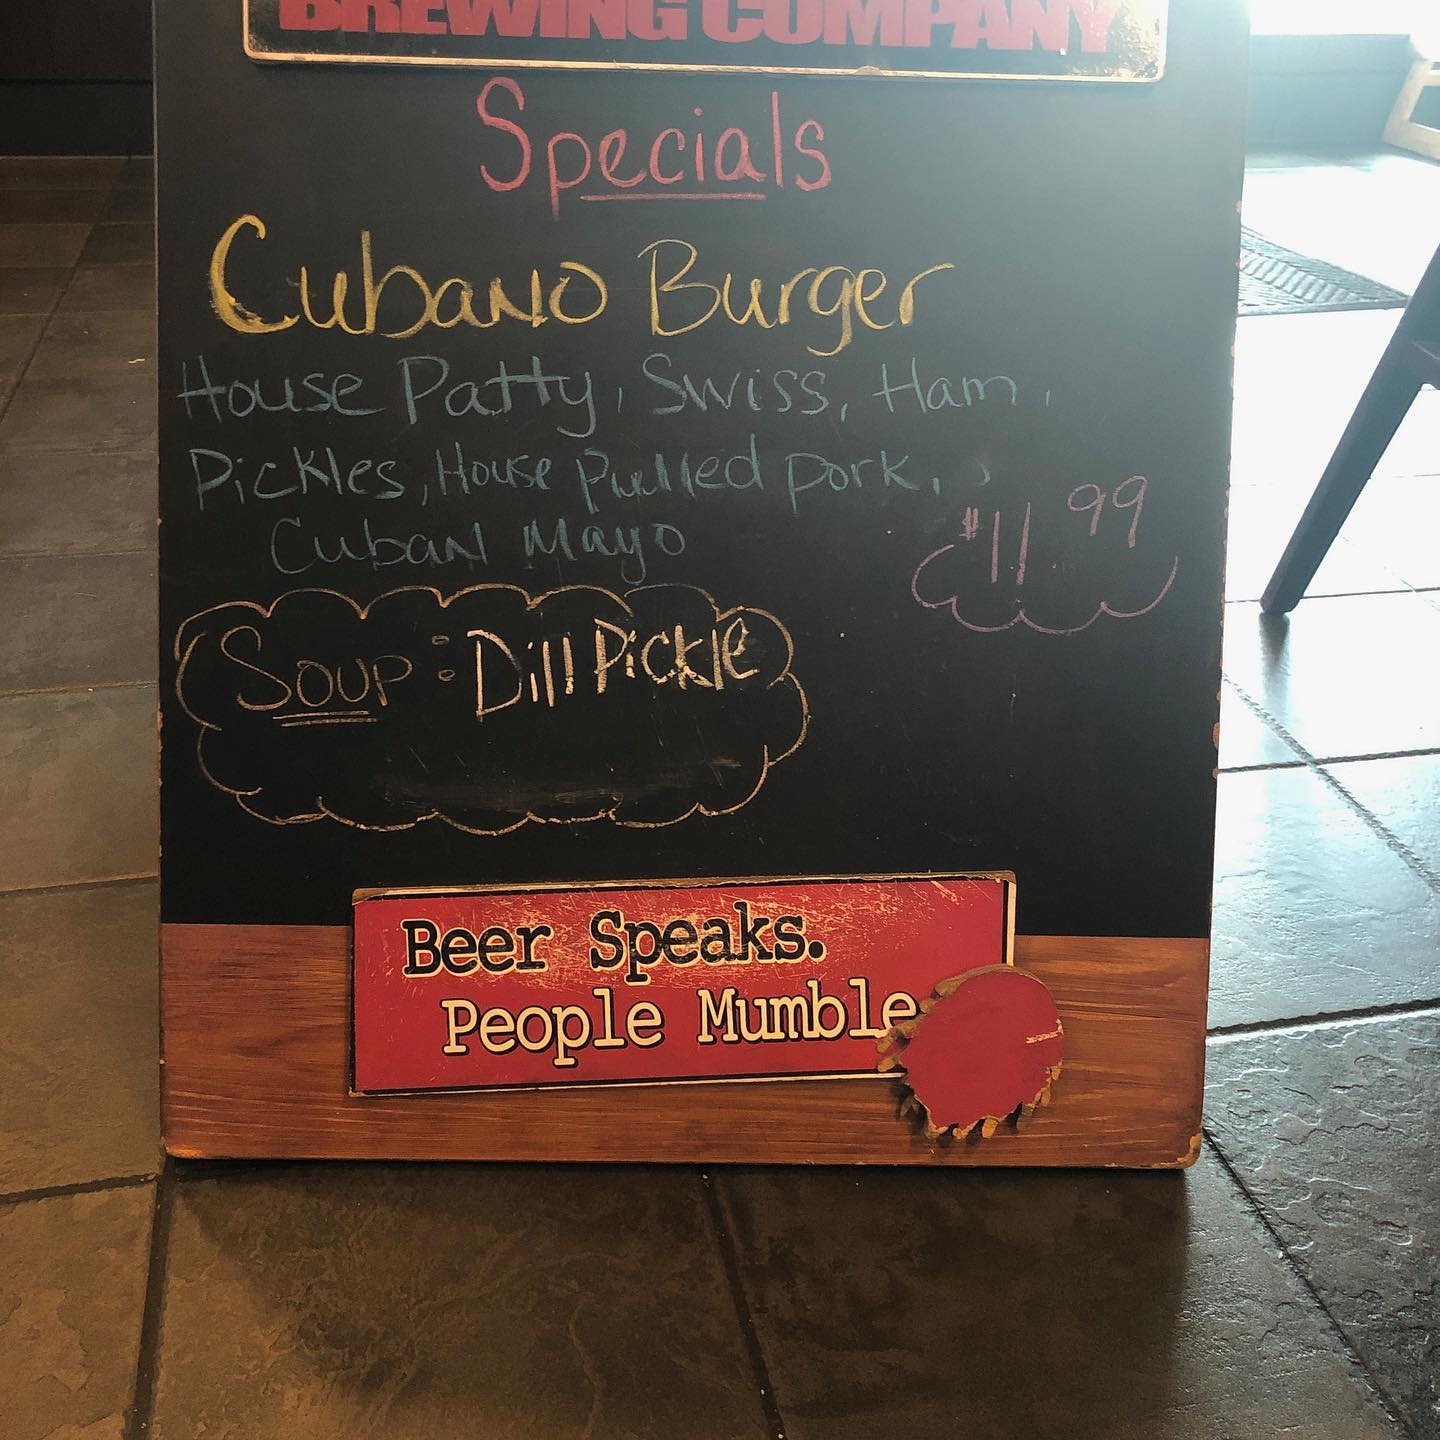 BREWING COMPANY
Specials
Cubano Burger
House Patty, Swiss, Ham,
Pickles, House Pulled Pork,
Cuban Mayo
$11.99
Soup: Dill Pickle
Beer Speaks.
People Mumble